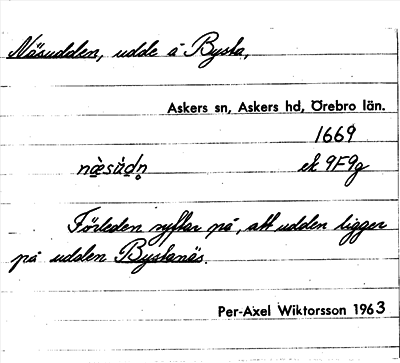 Näsudden, udde å Bysta,
Askers sn, Askers hd, Örebro län.
1669
næ̀sùd̥n̥ ek 9F9g
Förleden syftar på, att udden ligger
på udden Bystanäs.
Per-Axel Wiktorsson 1963